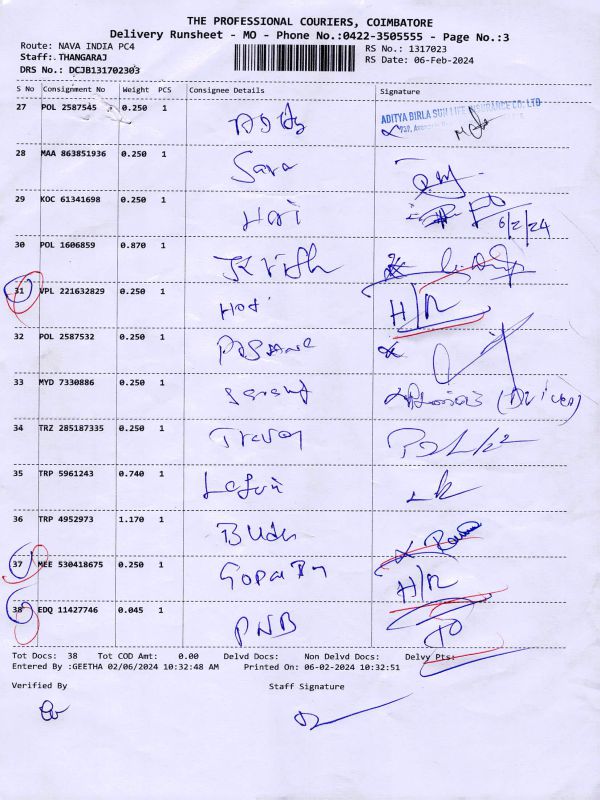 THE PROFESSIONAL COURIERS, COIMBATORE
Delivery Runsheet - MO - Phone No.:0422-3505555 - Page No.:3
Route: NAVA INDIA PC4
RS No.: 1317023
Staff: THANGARAJ
RS Date: 06-Feb-2024
DRS No.: DCJB131702303
S No Consignment No Weight PCS Consignee Details Signature
27 POL 2587545 0.250 1 ADITYA BIRLA SUN LIFE INSURANCE CO. LTD
28 MAA 863851936 0.250 1 Sara
29 KOC 61341698 0.250 1 Hari 6/2/24
30 POL 1606859 0.870 1 Krish
31 VPL 221632829 0.250 1 H/R
32 POL 2587532 0.250 1
33 MYD 7330886 0.250 1 (Driver)
34 TRZ 285187335 0.250 1
35 TRP 5961243 0.740 1
36 TRP 4952973 1.170 1
37 MEE 530418675 0.250 1 H/R
38 EDQ 11427746 0.045 1 PNB
Tot Docs: 38 Tot COD Amt: 0.00 Delvd Docs: Non Delvd Docs: Delvy Pts:
Entered By :GEETHA 02/06/2024 10:32:48 AM Printed On: 06-02-2024 10:32:51
Verified By Staff Signature